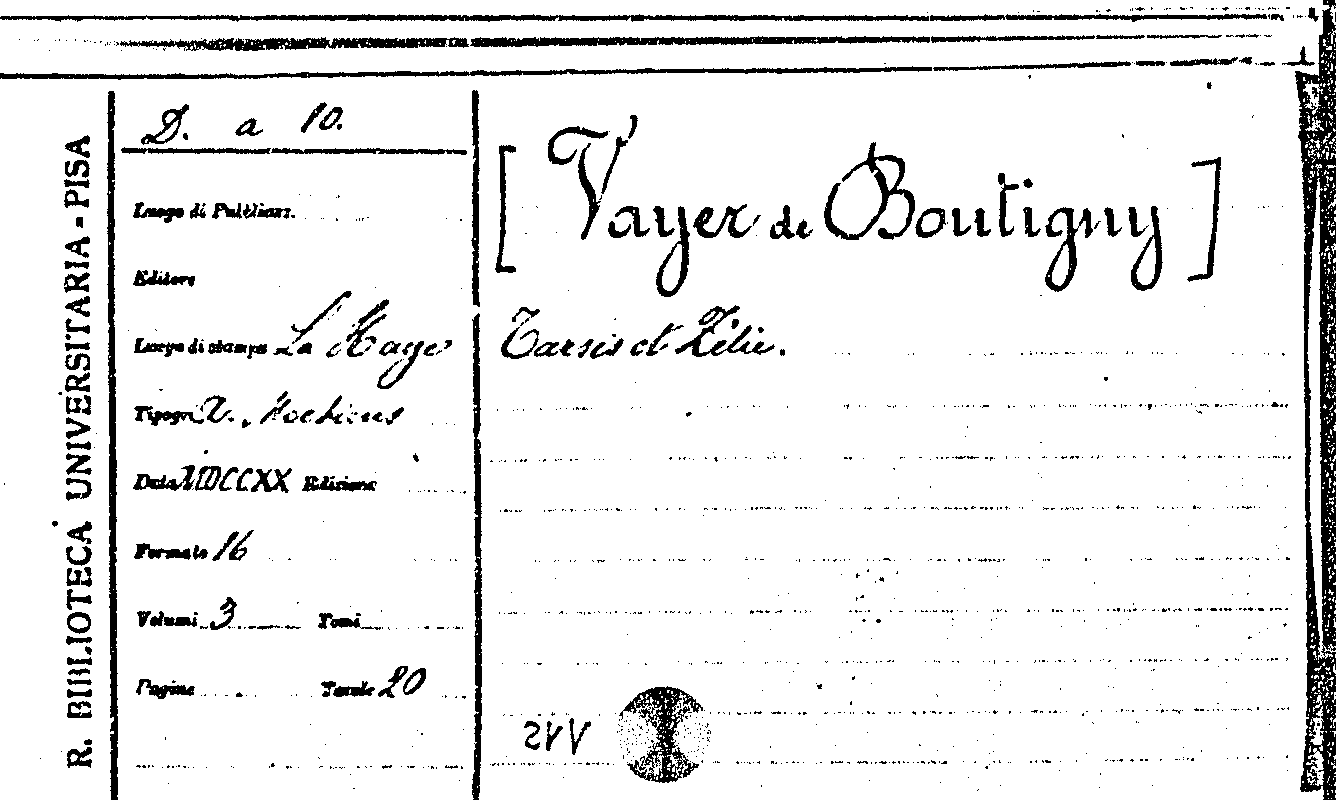 R. BIBLIOTECA UNIVERSITARIA - PISA
D. a 10.
Luogo di Pubblicaz.
Editore
Luogo di stampa La Haye
Tipogr. A. Moetiens
Data MDCCXX Edizione
Formato 16
Volumi 3 Tomi
Pagine Tavole 20
[Vayer de Boutigny]
Tarsis et Zélie.